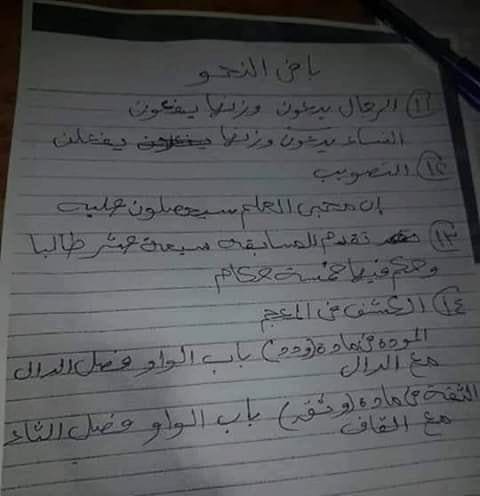 باقى النحو
١١ الرجال يدعون وزنها يفعون
النساء يدعون وزنها يفعلن
١٢ التصويب
إن محبى العلم سيحصلون عليه
١٣ تقدم للمسابقة سبعة عشر طالبا
وحكم فيها خمسة حكام
١٤ الكشف فى المعجم
المودة فى مادة (ودد) باب الواو فصل الدال
مع الدال
الثقة فى مادة (وثق) باب الواو فصل الثاء
مع القاف